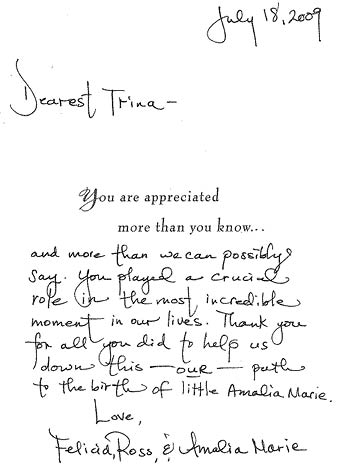 July 18, 2009
Dearest Trina —
You are appreciated
more than you know...
and more than we can possibly
say. You played a crucial
role in the most incredible
moment in our lives. Thank you
for all you did to help us
down this — our — path
to the birth of little Amalia Marie.
Love,
Felicia, Ross, & Amalia Marie